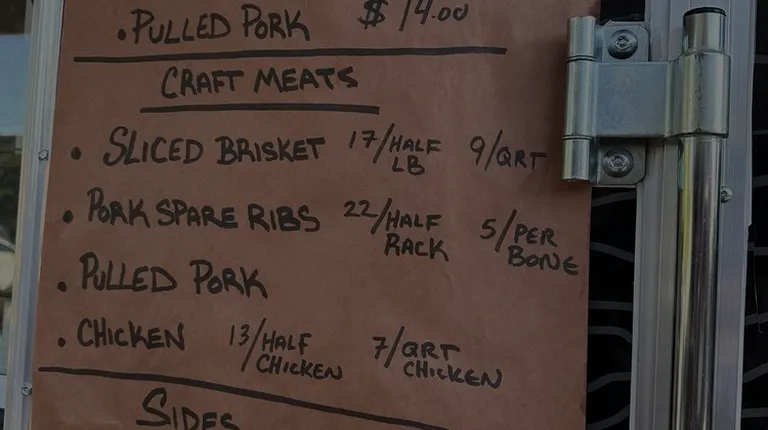 • PULLED PORK $ 14.00
CRAFT MEATS
• SLICED BRISKET 17/HALF LB 9/QRT
• PORK SPARE RIBS 22/HALF RACK 5/PER BONE
• PULLED PORK
• CHICKEN 13/HALF CHICKEN 7/QRT CHICKEN
SIDES